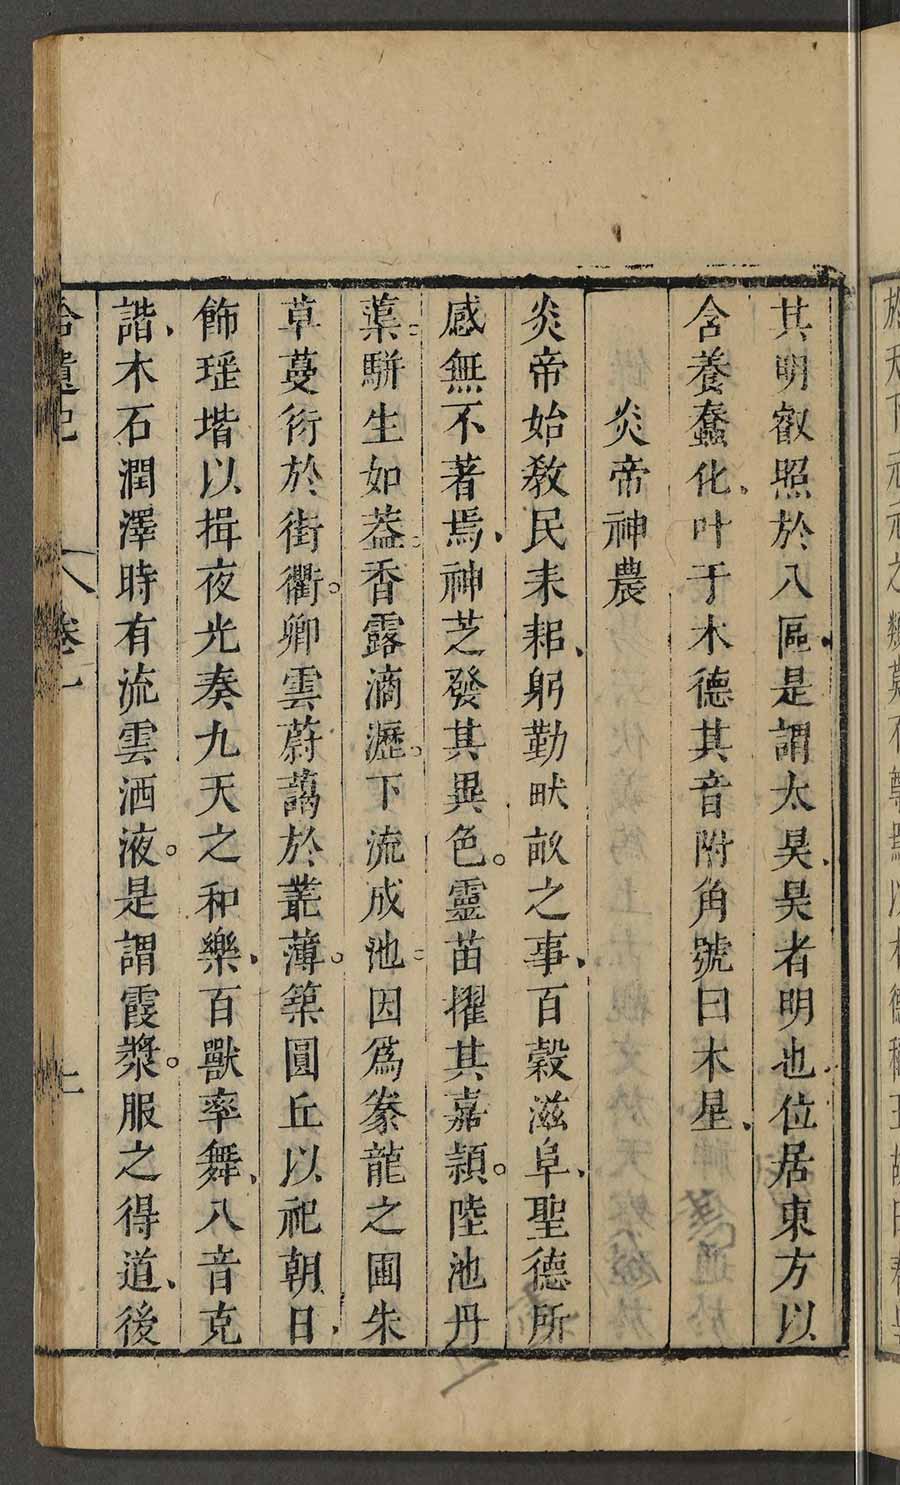 其明叡照於八區是謂太昊昊者明也位居東方以
含養蠶化叶于木德其音附角號曰木星
炎帝神農
炎帝始敎民耒耜躬勤畎畝之事百穀滋阜聖德所
感無不著焉神芝發其異色靈苗擢其嘉穎陸池丹
蕖駢生如葢香露滴瀝下流成池因爲豢龍之圃朱
草蔓衍於街衢卿雲蔚藹於叢薄築圓丘以祀朝日
飾瑶堦以揖夜光奏九天之和樂百獸率舞八音克
諧木石潤澤時有流雲洒液是謂霞漿服之得道後
拾遺記 卷一 上